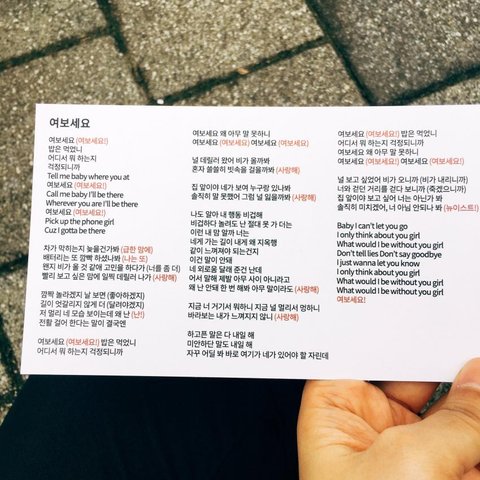 여보세요
여보세요 (여보세요!)
밥은 먹었니
어디서 뭐 하는지
걱정되니까
Tell me baby where you at
여보세요 (여보세요!)
Call me baby I'll be there
Wherever you are I'll be there
여보세요 (여보세요!)
Pick up the phone girl
Cuz I gotta be there
차가 막히는지 늦을건가봐 (급한 맘에)
배터리는 또 깜빡 하셨나봐 (나는 또)
왠지 비가 올 것 같애 고민을 하다가 (너를 좀 더)
빨리 보고 싶은 맘에 일찍 데릴러 나가 (사랑해)
깜짝 놀라겠지 날 보면 (좋아하겠지)
길이 엇갈리지 않게 더 (달려야겠지)
저 멀리 네 모습 보이는데 왜 난 (난!)
전활 걸어 한다는 말이 결국엔
여보세요 (여보세요!) 밥은 먹었니
어디서 뭐 하는지 걱정되니까
여보세요 왜 아무 말 못하니
여보세요 (여보세요) 여보세요 (여보세요)
널 데릴러 왔어 비가 올까봐
혼자 쓸쓸히 빗속을 걸을까봐 (사랑해)
집 앞이야 네가 보여 누구랑 있나봐
솔직히 말 못했어 그럼 널 잃을까봐 (사랑해)
나도 알아 내 행동 비겁해
비겁하다 놀려도 난 절대 못 가 더는
이런 내 맘 알까 너는
네게 가는 길이 내게 왜 지옥행
같이 느껴져야 되는건지
이건 말이 안돼
네 외로움 달래 준건 난데
어서 말해 제발 아무 사이 아니라고
왜 난 안돼 한 번 해봐 아무 말이라도 (사랑해)
지금 너 거기서 뭐하니 지금 널 멀리서 멍하니
바라보는 내가 느껴지지 않니 (사랑해)
하고픈 말은 다 내일 해
미안하단 말도 내일 해
자꾸 어딜 봐 바로 여기가 네가 있어야 할 자린데
여보세요 (여보세요!) 밥은 먹었니
어디서 뭐 하는지 걱정되니까
여보세요 왜 아무 말 못하니
여보세요 (여보세요) 여보세요 (여보세요)
널 보고 싶었어 비가 오니까 (비가 내리니까)
너와 걷던 거리를 걷다 보니까 (죽겠으니까)
집 앞이야 보고 싶어 너는 아닌가 봐
솔직히 미치겠어, 너 아님 안되나 봐 (뉴이스트!)
Baby I can't let you go
I only think about you girl
What would I be without you girl
Don't tell lies Don't say goodbye
I just wanna let you know
I only think about you girl
What would I be without you girl
What would I be without you girl
여보세요!